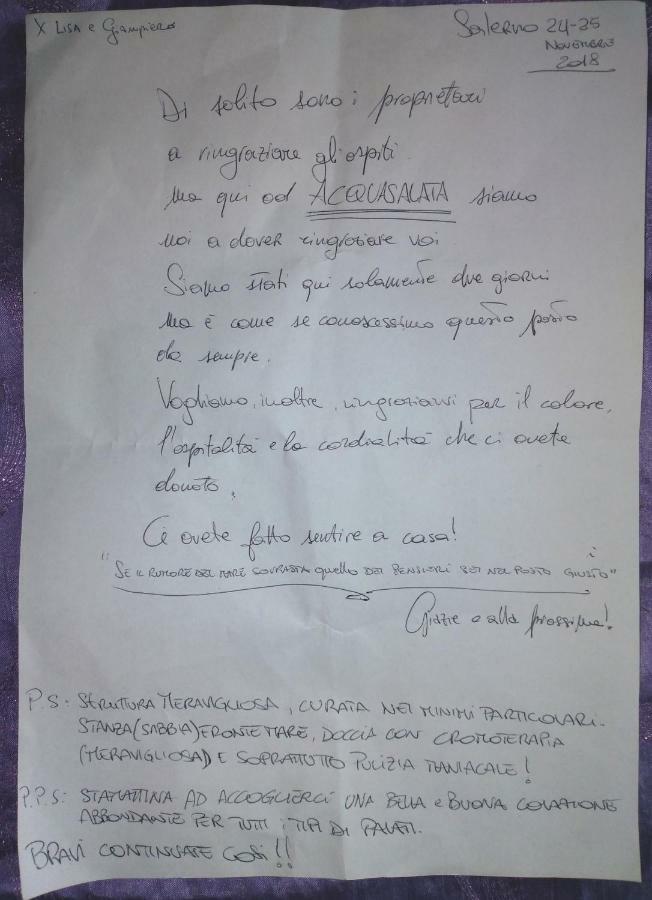 X Lisa e Giampiero
Salerno 24-25
Novembre
2018
Di solito sono i proprietari
a ringraziare gli ospiti.
Ma qui ad ACQUASALATA siamo
noi a dover ringraziare voi.
Siamo stati qui solamente due giorni
ma è come se conoscessimo questo posto
da sempre.
Vogliamo, inoltre, ringraziarvi per il calore,
l'ospitalità e la cordialità che ci avete
donato.
Ci avete fatto sentire a casa!
"SE IL RUMORE DEL MARE SOVRASTA quello DEI PENSIERI SEI NEL POSTO GIUSTO"
Grazie e alla prossima!
P.S: STRUTTURA MERAVIGLIOSA, CURATA NEI MINIMI PARTICOLARI.
STANZA (SABBIA) FRONTE MARE, DOCCIA CON CROMOTERAPIA
(MERAVIGLIOSA) E SOPRATTUTTO PULIZIA MANIACALE!
P.P.S: STAMATTINA AD ACCOGLIERCI UNA BELLA e BUONA COLAZIONE
ABBONDANTE PER TUTTI i TIPI DI PALATI.
BRAVI CONTINUATE COSÌ!!